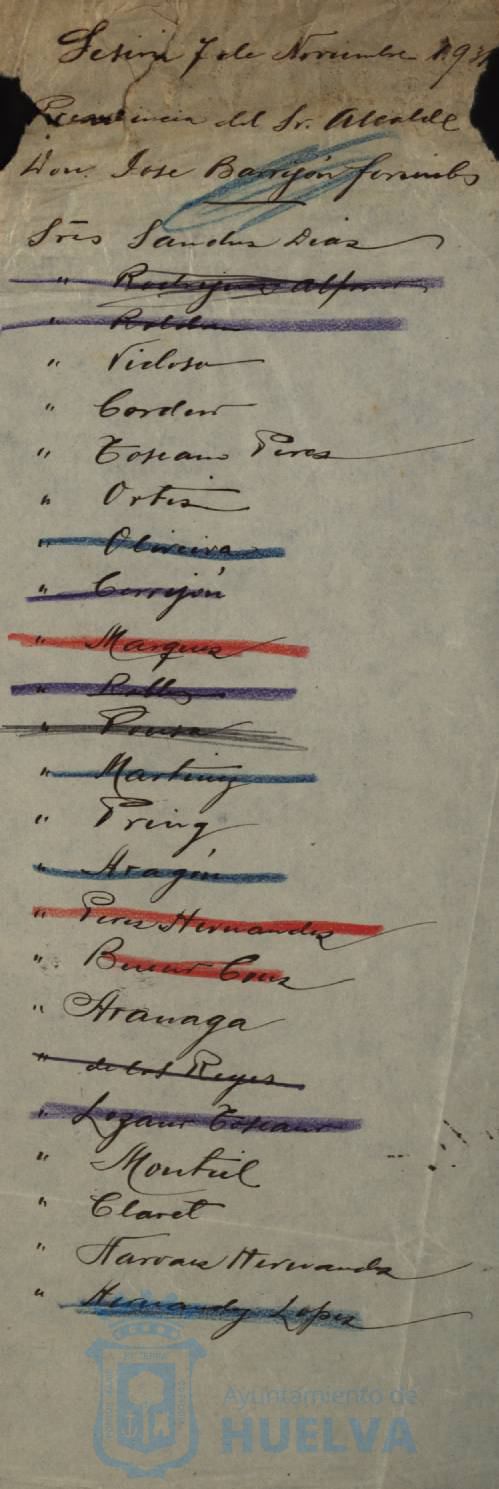 Sesion 7 de Noviembre 193
Presidencia del Sr. Alcalde
Don. Jose Barrigón
Sres Sanchez Dias
" Rodriguez Alfonso
" Roldan
" Vidosa
" Cordero
" Toscano Peres
" Ortiz
" Oliveira
" Cerrejón
" Marquez
"
" Ponsa
" Martinez
" Pring
" Aragón
" Peres Hernandez
" Bueno Cruz
" Aranaga
" de los Reyes
" Lozano Toscano
" Montiel
" Claret
" Narvaez Hernandez
" Hernandez Lopez
Ayuntamiento de
HUELVA